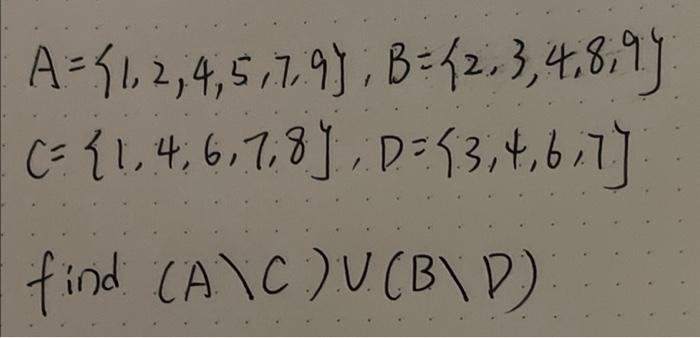 A={1,2,4,5,7,9}, B={2,3,4,8,9}
C={1,4,6,7,8}, D={3,4,6,7}
find (A\C)∪(B\D)